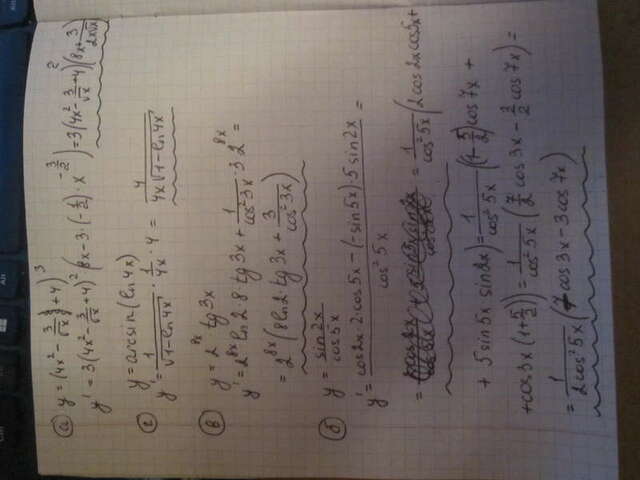 а) y = (4x² - 3/√x + 4)³
y' = 3(4x² - 3/√x + 4)² (8x - 3·(-1/2)·x^(-3/2)) = 3(4x² - 3/√x + 4)² (8x + 3/(2x√x))
г) y = arcsin(ln4x)
y' = 1/√(1-ln4x) · 1/4x · 4 = 4/(4x√(1-ln4x))
в) y = 2^(8x) tg3x
y' = 2^(8x) ln2·8·tg3x + 1/cos²3x ·3 2^(8x) =
= 2^(8x) (8ln2·tg3x + 3/cos²3x)
б) y = sin2x/cos5x
y' = (cos2x·2·cos5x - (-sin5x)·5sin2x)/cos²5x =
= = 1/cos²5x (2cos2x cos5x +
+ 5sin5x sin2x) = 1/cos²5x ((1-5/2)cos7x +
+ cos3x(1+5/2)) = 1/cos²5x (7/2 cos3x - 3/2 cos7x) =
= 1/(2cos²5x) (7cos3x - 3cos7x)